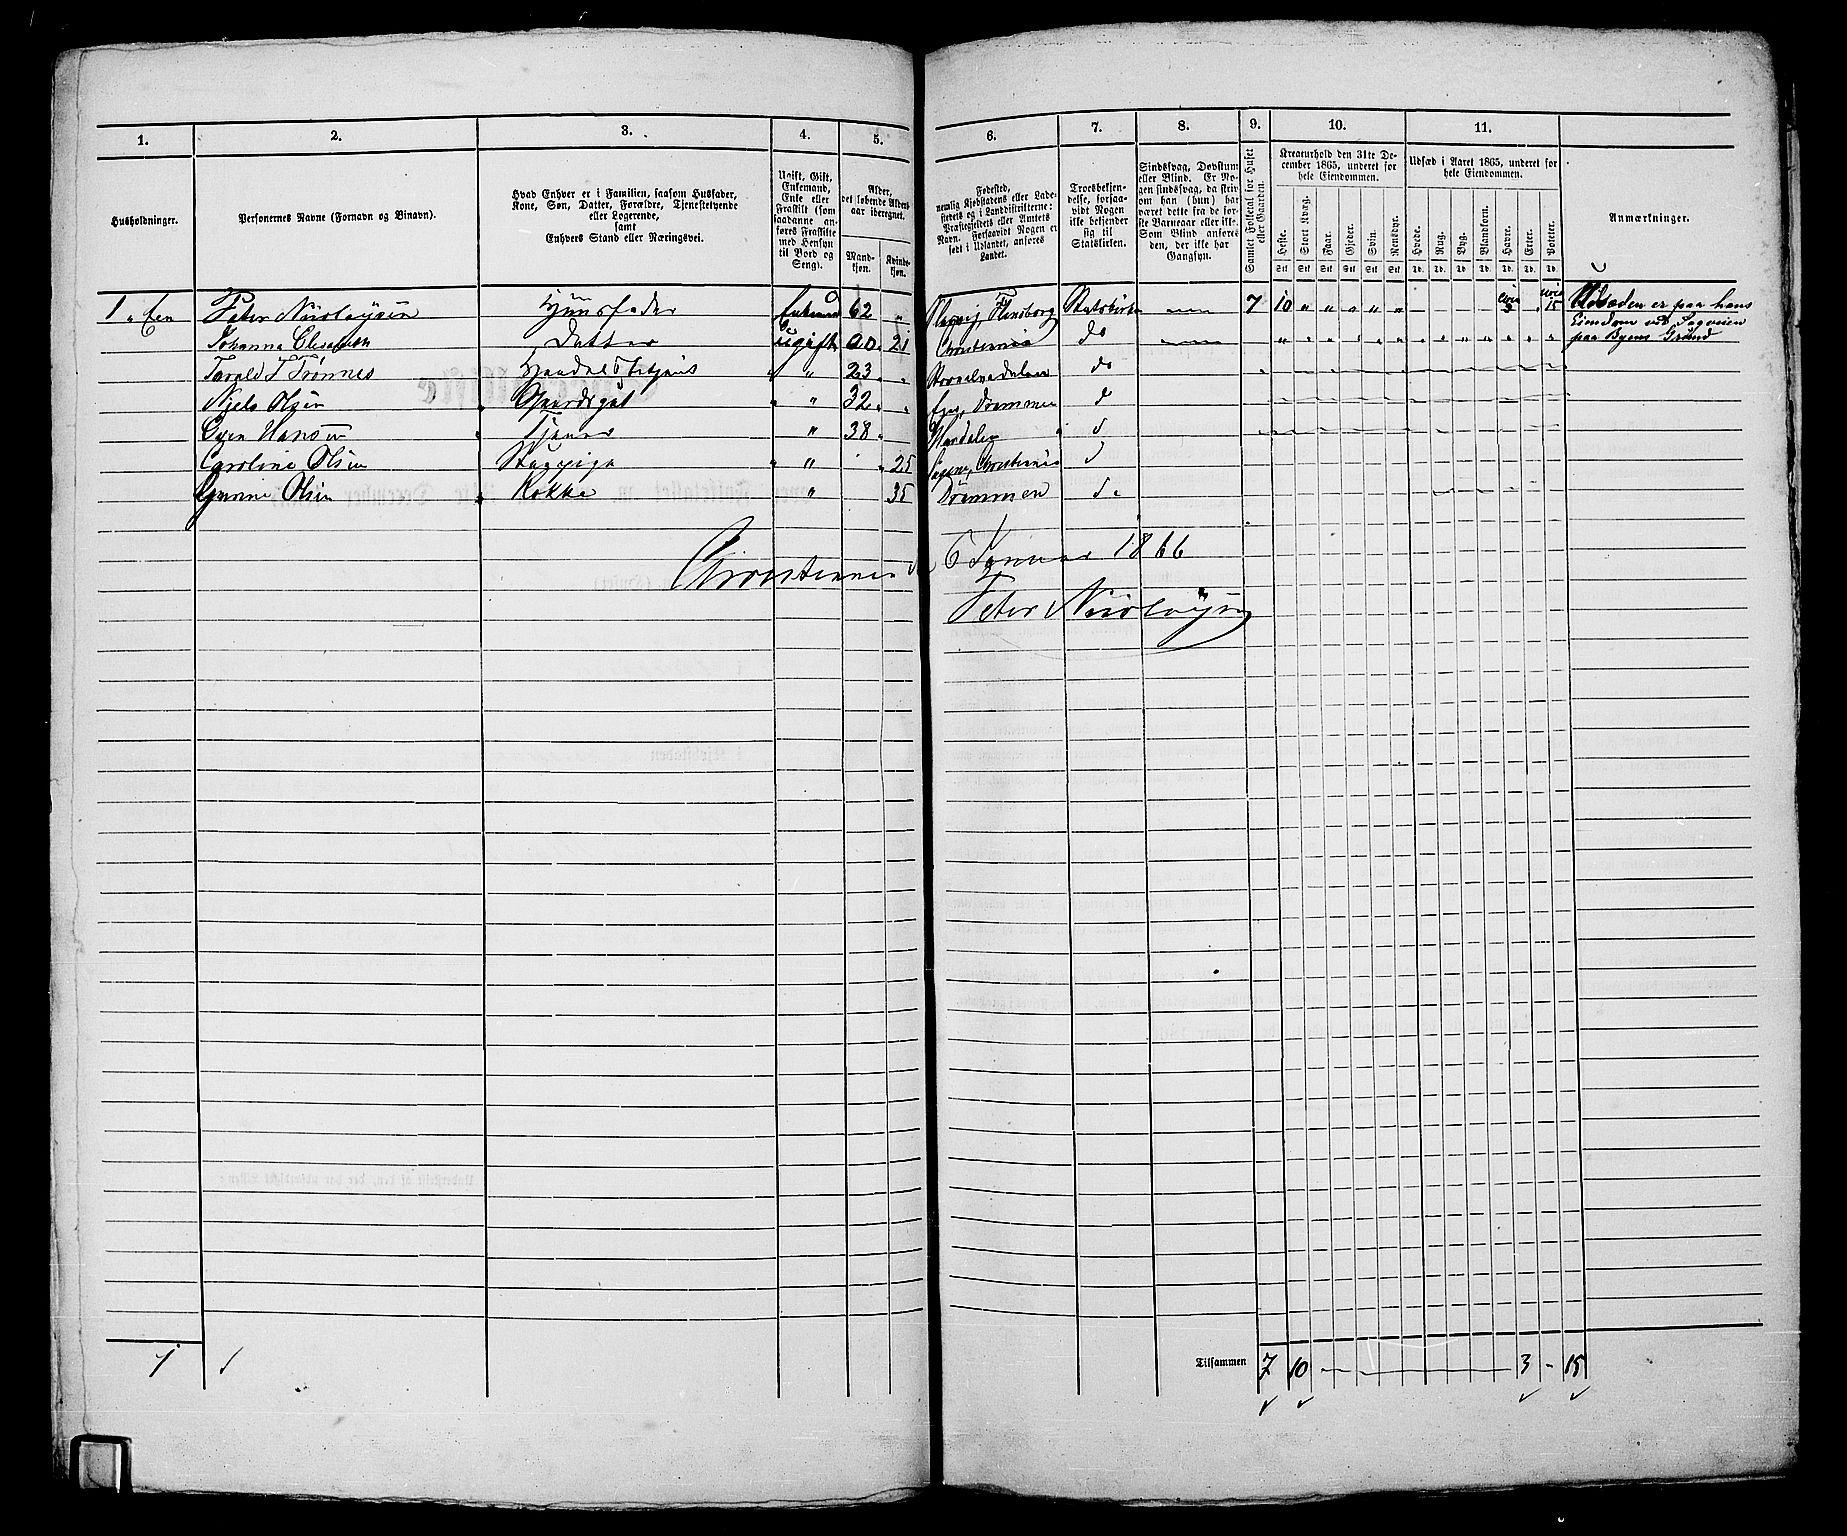 1. 2. 3. 4. 5. 6. 7. 8. 9. 10. 11.
Husholdninger.
Personernes Navne (Fornavn og Binavn).
Hvad Enhver er i Familien, saasom Husfader,
Kone, Søn, Datter, Forældre, Tjenestetyende
eller Logerende,
samt
Enhvers Stand eller Næringsvei.
Ugift, Gift,
Enkemand,
Enke eller
Fraskilt (som
saadanne an-
føres Fraskilte
med Hensyn
til Bord og
Seng).
Alder,
det løbende Alders-
aar iberegnet.
Mand-
kjøn.
Kvinde-
kjøn.
Fødested,
nemlig Kjøbstadens eller Lade-
stedets og i Landdistrikterne:
Præstegjeldets eller Amtets
Navn. Forsaavidt Nogen er
født i Udlandet, anføres
Landet.
Troesbekjen-
delse, forsaa-
vidt Nogen
ikke bekjender
sig til
Statskirken.
Sindssvag, Døvstum
eller Blind. Er No-
gen sindssvag, da skriv
om han (hun) har
været dette fra de før-
ste Barneaar eller ikke.
Som Blind anføres
den, der ikke har
Gangsyn.
Samlet Folketal for Huset
eller Gaarden.
Kreaturhold den 31te De-
cember 1865, underet for
hele Eiendommen.
Heste. Stort Kvæg. Faar. Gjeder. Svin. Rensdyr.
Stk Stk Stk Stk Stk Stk
Udsæd i Aaret 1865, underet for
hele Eiendommen.
Hvede. Rug. Byg. Blandkorn. Havre. Erter. Poteter.
Td. Td. Td. Td. Td. Td. Td.
Anmærkninger.
1 " Een Peter Nicolaysen Huusfader Enkem 62 " Flensborg Statskirken 7 10 " " " " " circa 3 " circa 15 Udsæden er paa hans
Johanna Elisabeth Datter ugift 00 21 Christiania do " " " " " " " " " " " " Eiendom ved Sagveien
paa Byens Grund
Tarald T Trønnes Handelsbetjent " 23 " do
Niels Olsen Gaardsgut " 32 " Drammen d
Hansen Tjener " 38 " d
Caroline Olsen Stuepige " " 25 Christiania d
Gurine Olsen Kokke " 35 Drammen do
Christiania 6 Januar 1866
Peter Nicolaysen
1 Tilsammen 7 10 3 - 15